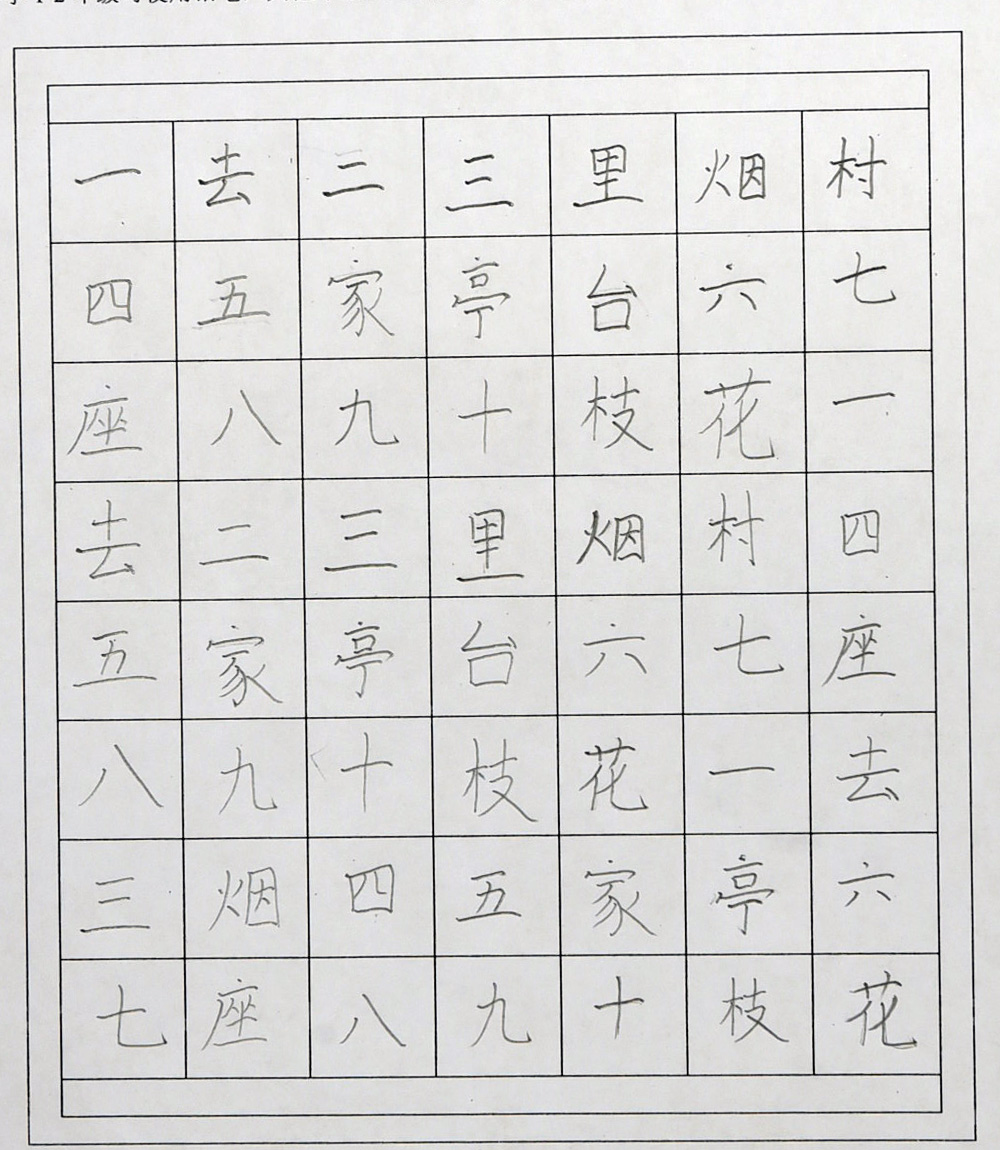 一去二三里烟村
四五家亭台六七
座八九十枝花一
去二三里烟村四
五家亭台六七座
八九十枝花一去
三烟四五家亭六
七座八九十枝花